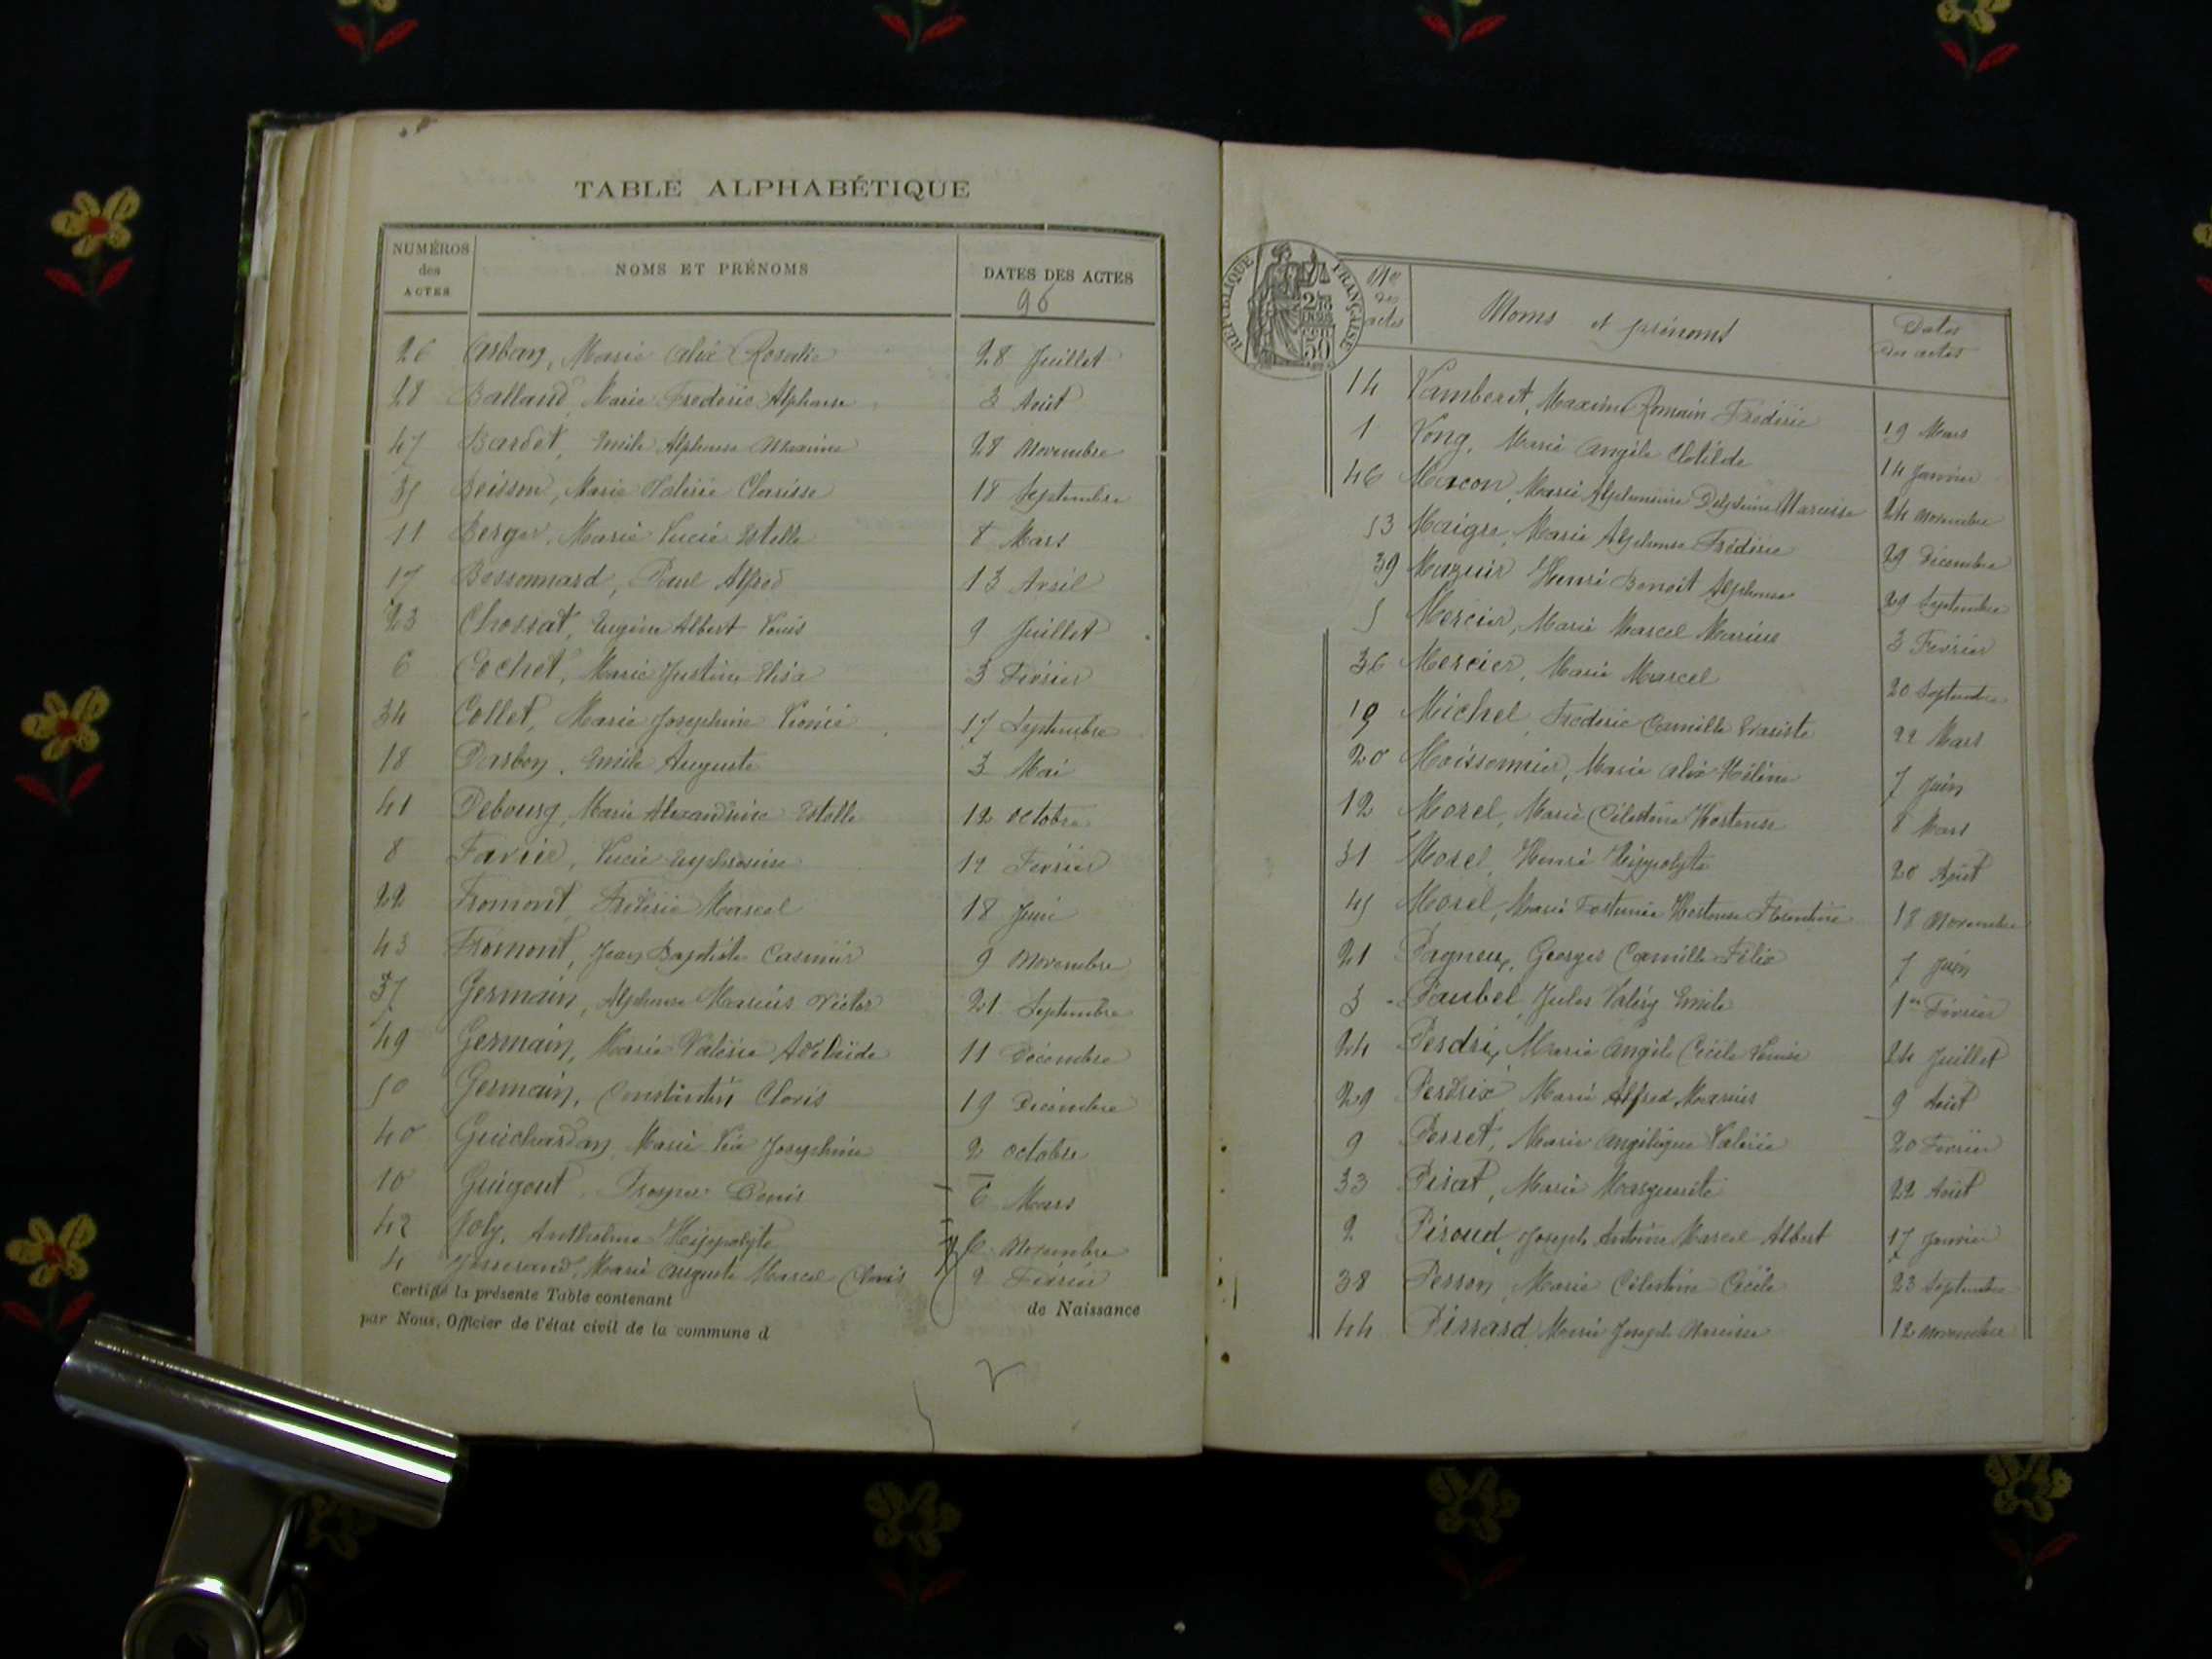 TABLE ALPHABÉTIQUE
NUMÉROS des ACTES
NOMS ET PRÉNOMS
DATES DES ACTES
96
26 Arban, Marie Alix Rosalie 28 Juillet
28 Balland, Marie Frédéric Alphonse 3 Août
47 Bardet, Emile Alphonse Maxime 28 Novembre
35 Boisson, Marie Valérie Clarisse 18 Septembre
11 Berger, Marie Lucie Estelle 8 Mars
17 Bossonnard, Paul Alfred 13 Avril
23 Chossat, Eugène Albert Louis 9 Juillet
6 Cochet, Marie Justine Elisa 3 Février
34 Collet, Marie Joséphine 17 Septembre
18 Darbon, Emile Auguste 3 Mai
41 Debourg, Marie Alexandrine Estelle 12 Octobre
8 Favier, Lucie Euphrosine Février
22 Fromont, Frédéric Marcel 18 Juin
43 Fromont, Jean Baptiste Casimir 9 Novembre
37 Germain, Alphonse Marius Victor 21 Septembre
49 Germain, Marie Valérie Adélaïde 11 Décembre
50 Germain, Constantin Clovis 19 Décembre
40 Guichardan, Marie Joséphine 2 Octobre
10 Guigout, Prosper Denis 6 Mars
42 Joly, Anthelme Hippolyte 6 Novembre
4 Josserand, Marie Auguste Marcel Clovis 2 Février
Certifié la présente Table contenant
de Naissance
par Nous, Officier de l'état civil de la commune d
RÉPUBLIQUE FRANÇAISE
50
Nos des actes
Noms et prénoms
Dates des actes
14 Lamberet, Maxime Romain Frédéric 19 Mars
1 Long, Marie Angèle Clotilde 14 Janvier
46 Macon, Marie Alphonsine Delphine Narcisse 24 Novembre
53 Maigre, Marie Alphonse Frédéric 29 Décembre
39 Mazuir Henri Benoit Alphonse 29 Septembre
5 Mercier, Marie Marcel Marius 3 Février
36 Mercier, Marie Marcel 20 Septembre
19 Michel, Frédéric Camille Evariste 22 Mars
20 Moissonnier, Marie Alix Hélène 7 Juin
12 Morel, Marie Célestine Hortense 8 Mars
31 Morel, Henri Hippolyte 20 Août
45 Morel, Marie Fortunée Hortense Florentine 18 Novembre
21 Pagneux, Georges Camille Félix 7 Juin
3 Paubel, Jules Valéry Emile 1er Février
24 Perdrix, Marie Angèle Cécile Louise 24 Juillet
29 Perdrix Marie Alfred Marius 9 Août
9 Perret, Marie Angélique Valérie 20 Février
33 Pirat, Marie Marguerite 22 Août
2 Piroud, Joseph Antoine Marcel Albert 17 Janvier
38 Perron, Marie Célestine Cécile 23 Septembre
44 Pirrard Marie Joseph Narcisse 12 Novembre